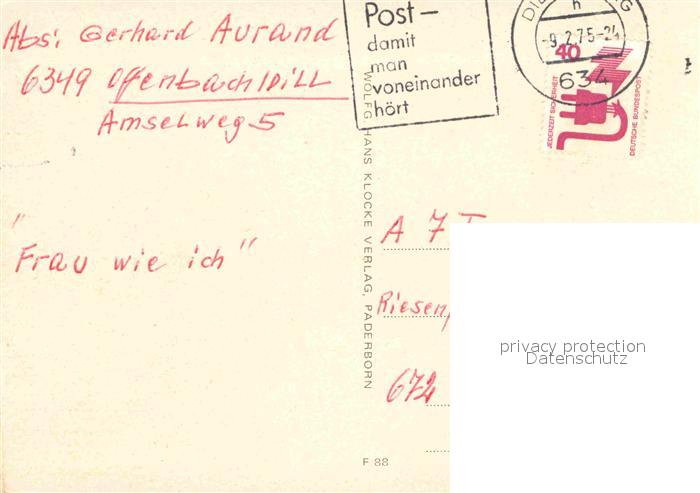 Abs: Gerhard Aurand
6349 Offenbach/Dill
Amselweg 5
Post-
damit
man
voneinander
hört
-9.2.75-24
634
40
JEDERZEIT SICHERHEIT
DEUTSCHE BUNDESPOST
WOLFG. HANS KLOCKE VERLAG, PADERBORN
"Frau wie ich"
A 7
Riesen
672
privacy protection
Datenschutz
F 88